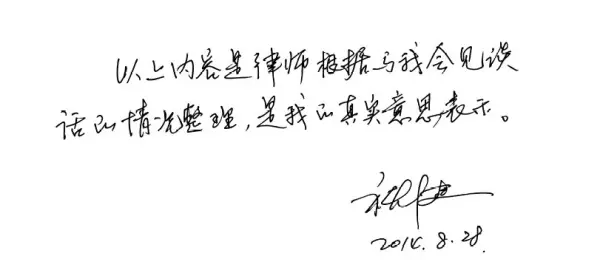 以上内容是律师根据与我会见谈
话的情况整理,是我的真实意思表示。
2014.8.28.